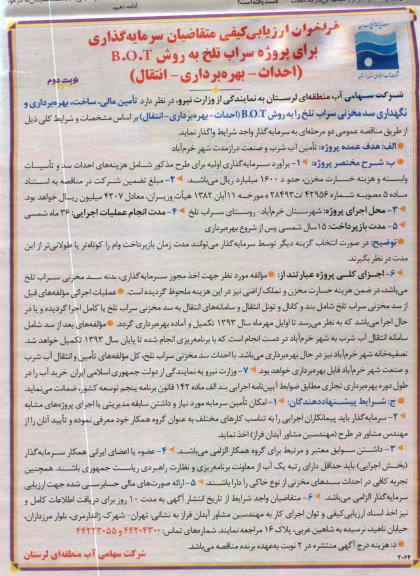 فراخوان ارزیابی‌کیفی متقاضیان سرمایه‌گذاری
برای پروژه سراب تلخ به روش B.O.T
(احداث - بهره‌برداری - انتقال)
نوبت دوم
شرکت سهامی آب منطقه‌ای لرستان به نمایندگی از وزارت نیرو، در نظر دارد تأمین مالی، ساخت، بهره‌برداری و
نگهداری سد مخزنی سراب تلخ را به روش B.O.T (احداث - بهره‌برداری - انتقال) بر اساس مشخصات و شرایط کلی ذیل
از طریق مناقصه عمومی دو مرحله‌ای به سرمایه‌گذار واجد شرایط واگذار نماید.
الف: هدف عمده پروژه: تأمین آب شرب و صنعت درازمدت شهر خرم‌آباد
ب: شرح مختصر پروژه: ۱- برآورد سرمایه‌گذاری اولیه برای طرح مذکور شامل هزینه‌های احداث سد و تأسیسات
وابسته و هزینه خسارت مخزن، حدود ۱۶۰۰ میلیارد ریال می‌باشد. ۲- مبلغ تضمین شرکت در مناقصه به استناد
ماده ۵ مصوبه شماره ۴۲۹۵۶/ت۲۸۴۹۳ه مورخه ۱۱ آبان ۱۳۸۲ هیأت وزیران، معادل ۴۲۰۷ میلیون ریال خواهد بود.
۳- محل اجرای پروژه: شهرستان خرم‌آباد - روستای سراب تلخ ۴- مدت انجام عملیات اجرایی: ۳۶ ماه شمسی
۵- مدت بازپرداخت: ۱۵ سال شمسی پس از شروع بهره‌برداری
توضیح: در صورت انتخاب گزینه دیگر توسط سرمایه‌گذار می‌توانند مدت زمان بازپرداخت وام را کوتاه‌تر یا طولانی‌تر از این
مدت در نظر بگیرند.
۶- اجزای کلی پروژه عبارتند از: مؤلفه مورد نظر جهت اخذ مجوز سرمایه‌گذاری، بدنه سد مخزنی سراب تلخ
می‌باشد، در ضمن هزینه خسارت مخزن و تملک اراضی نیز در این هزینه ملحوظ گردیده است. عملیات اجرائی مؤلفه‌های قبل
از سد مخزنی سراب تلخ شامل بند و کانال و تونل انتقال و سامانه‌های انتقال به سد مخزنی سراب تلخ یا کامل اجرا گردیده و یا در
حال اجرا می‌باشد که به نظر می‌رسد تا اوایل مهرماه سال ۱۳۹۳ تکمیل و آماده بهره‌برداری گردد. مؤلفه‌های بعد از سد شامل
سامانه انتقال آب شرب به شهر خرم‌آباد در دست انجام است که با برنامه‌ریزی انجام شده تا پایان سال ۱۳۹۳ تکمیل خواهد شد.
تصفیه‌خانه شهر خرم‌آباد نیز در حال بهره‌برداری می‌باشد. با احداث سد مخزنی سراب تلخ، کل مؤلفه‌های تأمین و انتقال آب شرب
و صنعت شهر خرم‌آباد قابل بهره‌برداری خواهد بود. ۷- وزارت نیرو به نمایندگی از دولت جمهوری اسلامی ایران خرید آب را در
طول دوره بهره‌برداری تجاری مطابق ضوابط آیین‌نامه اجرایی بند الف ماده ۱۴۲ قانون برنامه پنجم توسعه کشور، ضمانت می‌نماید.
ج: شرایط پیشنهاددهندگان: ۱- امکان تأمین سرمایه مورد نیاز و داشتن سابقه مدیریتی یا اجرای پروژه‌های مشابه
۲- سرمایه‌گذار باید پیمانکاران اجرایی را به تناسب کارهای مختلف به عنوان گروه همکار خود معرفی نموده و تأیید آنان را از
مهندس مشاور در طرح (مهندسین مشاور آبدان فراز) اخذ نماید.
۳- داشتن سوابق معتبر و مرتبط برای گروه همکار الزامی می‌باشد. ۴- عضو یا اعضای ایرانی همکار سرمایه‌گذار
(بخش اجرایی) باید حداقل دارای رتبه یک آب از معاونت برنامه‌ریزی و نظارت راهبردی ریاست جمهوری باشند. همچنین
تجربه کافی در احداث سدهای مخزنی از نوع خاکی را دارا باشند. ۵- ارائه صورت‌های مالی حسابرسی شده جهت ارزیابی
سرمایه‌گذار الزامی می‌باشد. ۶- متقاضیان واجد شرایط از تاریخ انتشار آگهی به مدت ۱۰ روز برای دریافت اطلاعات کامل و
نیز اخذ اسناد ارزیابی‌کیفی و توان اجرای کار به مهندسین مشاور آبدان فراز به نشانی: تهران - شهرک ژاندارمری، بلوار مرزداران،
خیابان ناهید، نرسیده به شاهین غربی، پلاک ۱۶ مراجعه نمایند. شماره‌های تماس: ۴۴۲۰۴۳۰۰ و ۴۴۲۲۳۰۵۵
د: هزینه درج آگهی منتشره در ۲ نوبت به‌عهده برنده مناقصه می‌باشد.
شرکت سهامی آب منطقه‌ای لرستان
۲۰۶۴